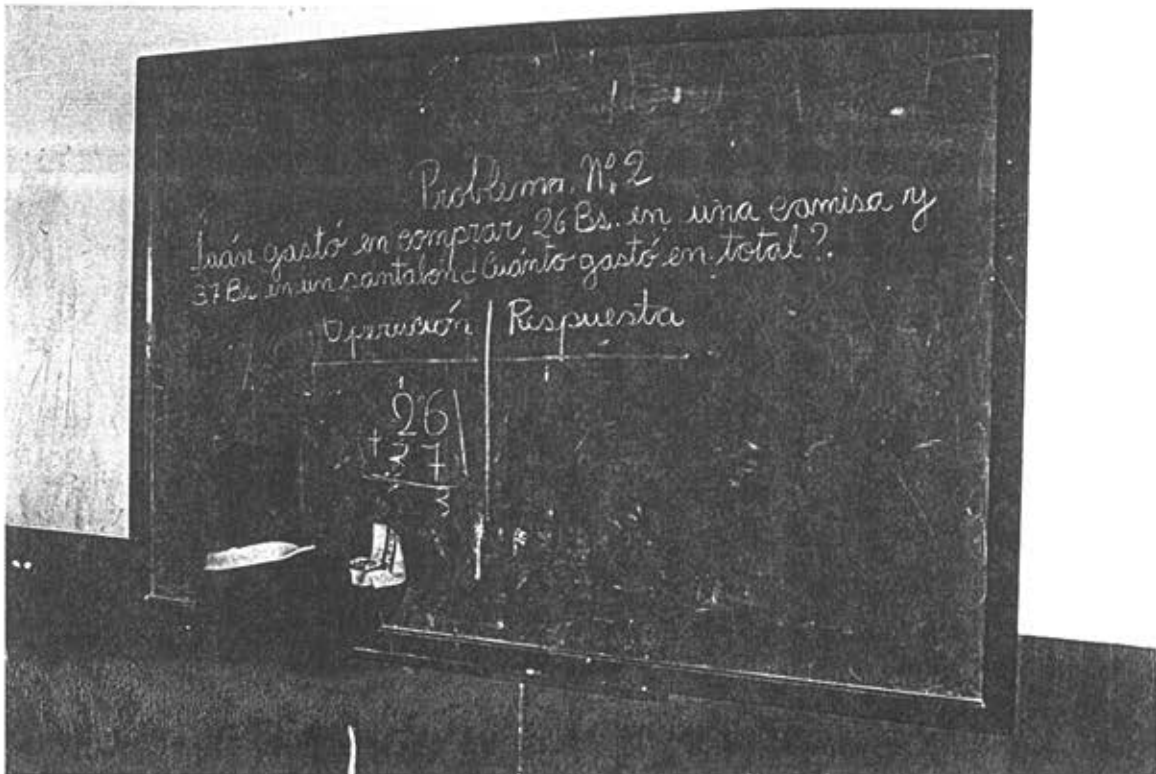 Problema Nº 2
Juán gastó en comprar 26 Bs. en una camisa y
37 Bs. en un pantalón ¿Cuánto gastó en total?.
Operación Respuesta
1
26
+ 37
3